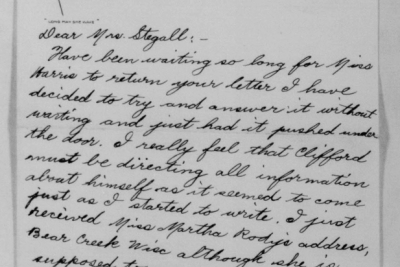 "LONG MAY SHE WAVE"
Dear Mrs. Stegall:-
Have been waiting so long for Miss
Harris to return your letter I have
decided to try and answer it without
waiting and just had it pushed under
the door. I really feel that Clifford
must be directing all information
about himself as it seemed to come
just as I started to write. I just
received Miss Martha Rodije address,
Bear Creek Wisc although she is
supposed to